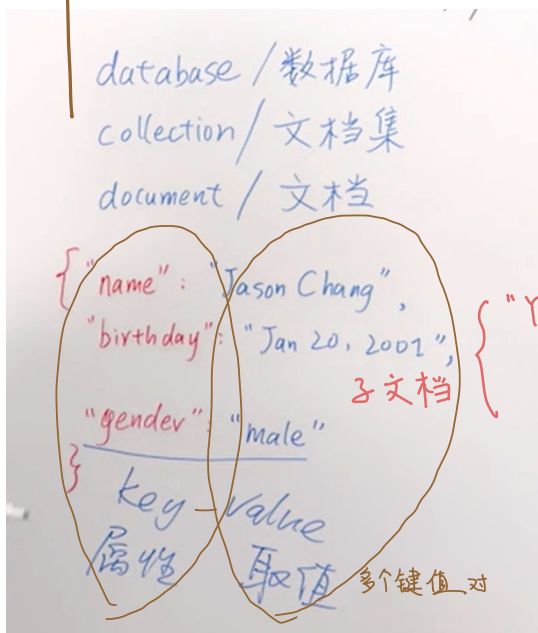 database / 数据库
collection / 文档集
document / 文档
{"name": "Jason Chang",
"birthday": "Jan 20, 2001", { "Y
子文档
"gender": "male"
}
key - value
属性 取值
多个键值对